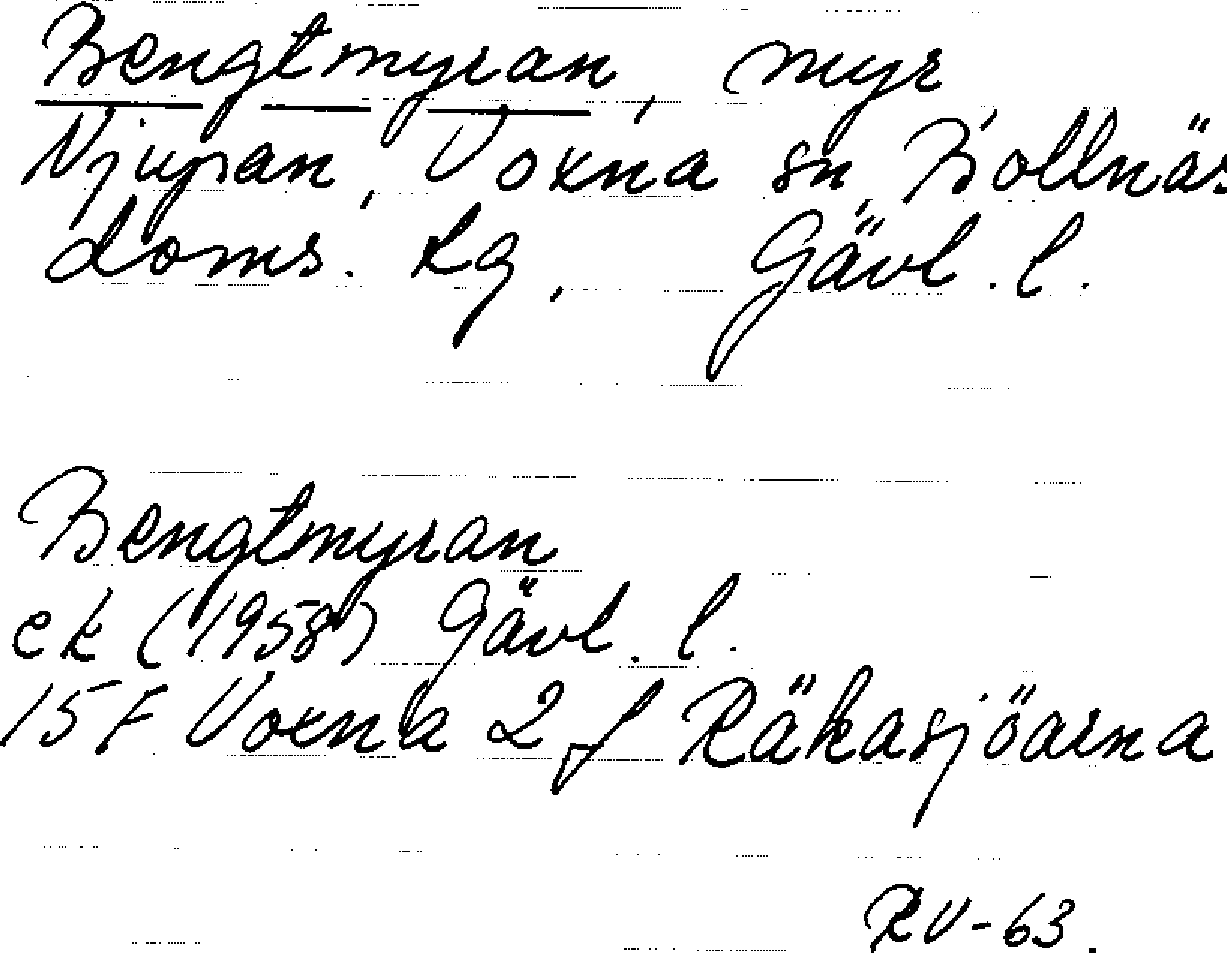 Bengtmyran, myr
Njupan, Voxna sn, Bollnäs
doms. lg, Gävl. l.
Bengtmyran
ek (1958) Gävl. l.
15F Voxna 2 f Räkasjöarna
RV-63.